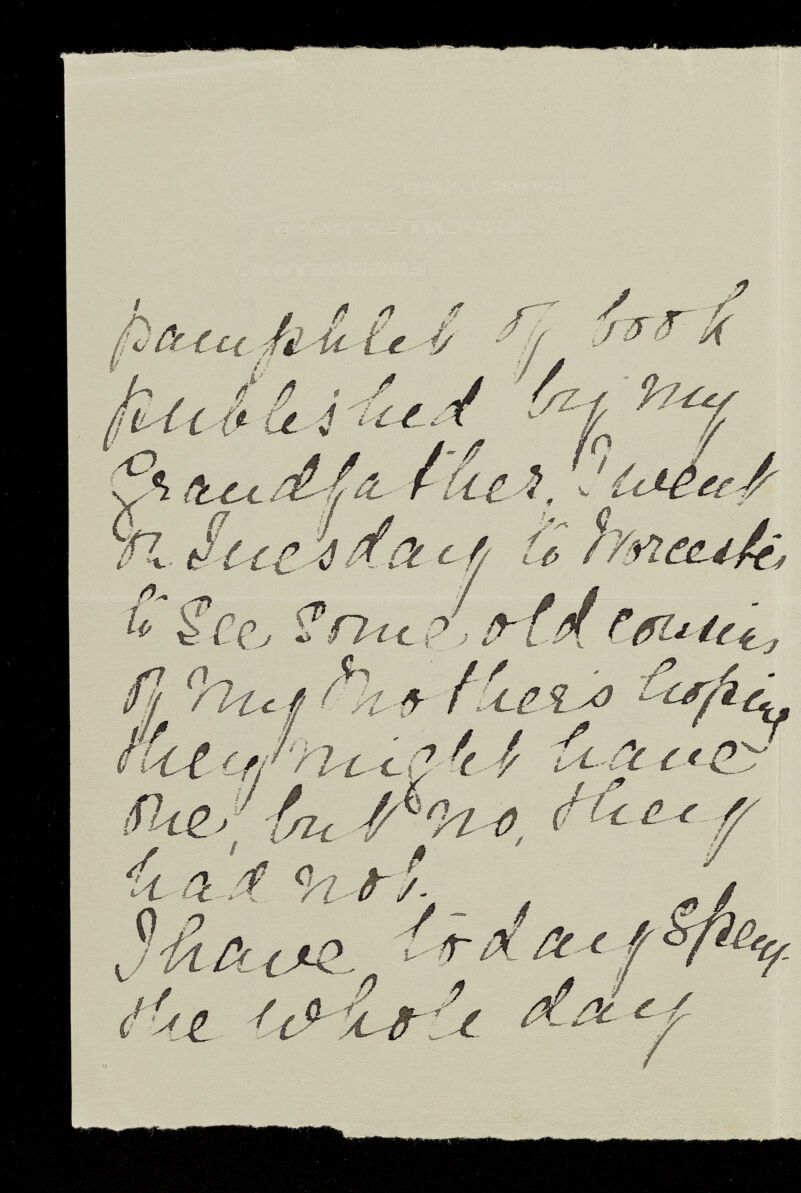 pamphlet of book
published by my
Grandfather, I went
on Tuesday to Worcester
to see some old cousins
of my Mother's hoping
they might have
one, but no, they
had not.
I have today spent
the whole day